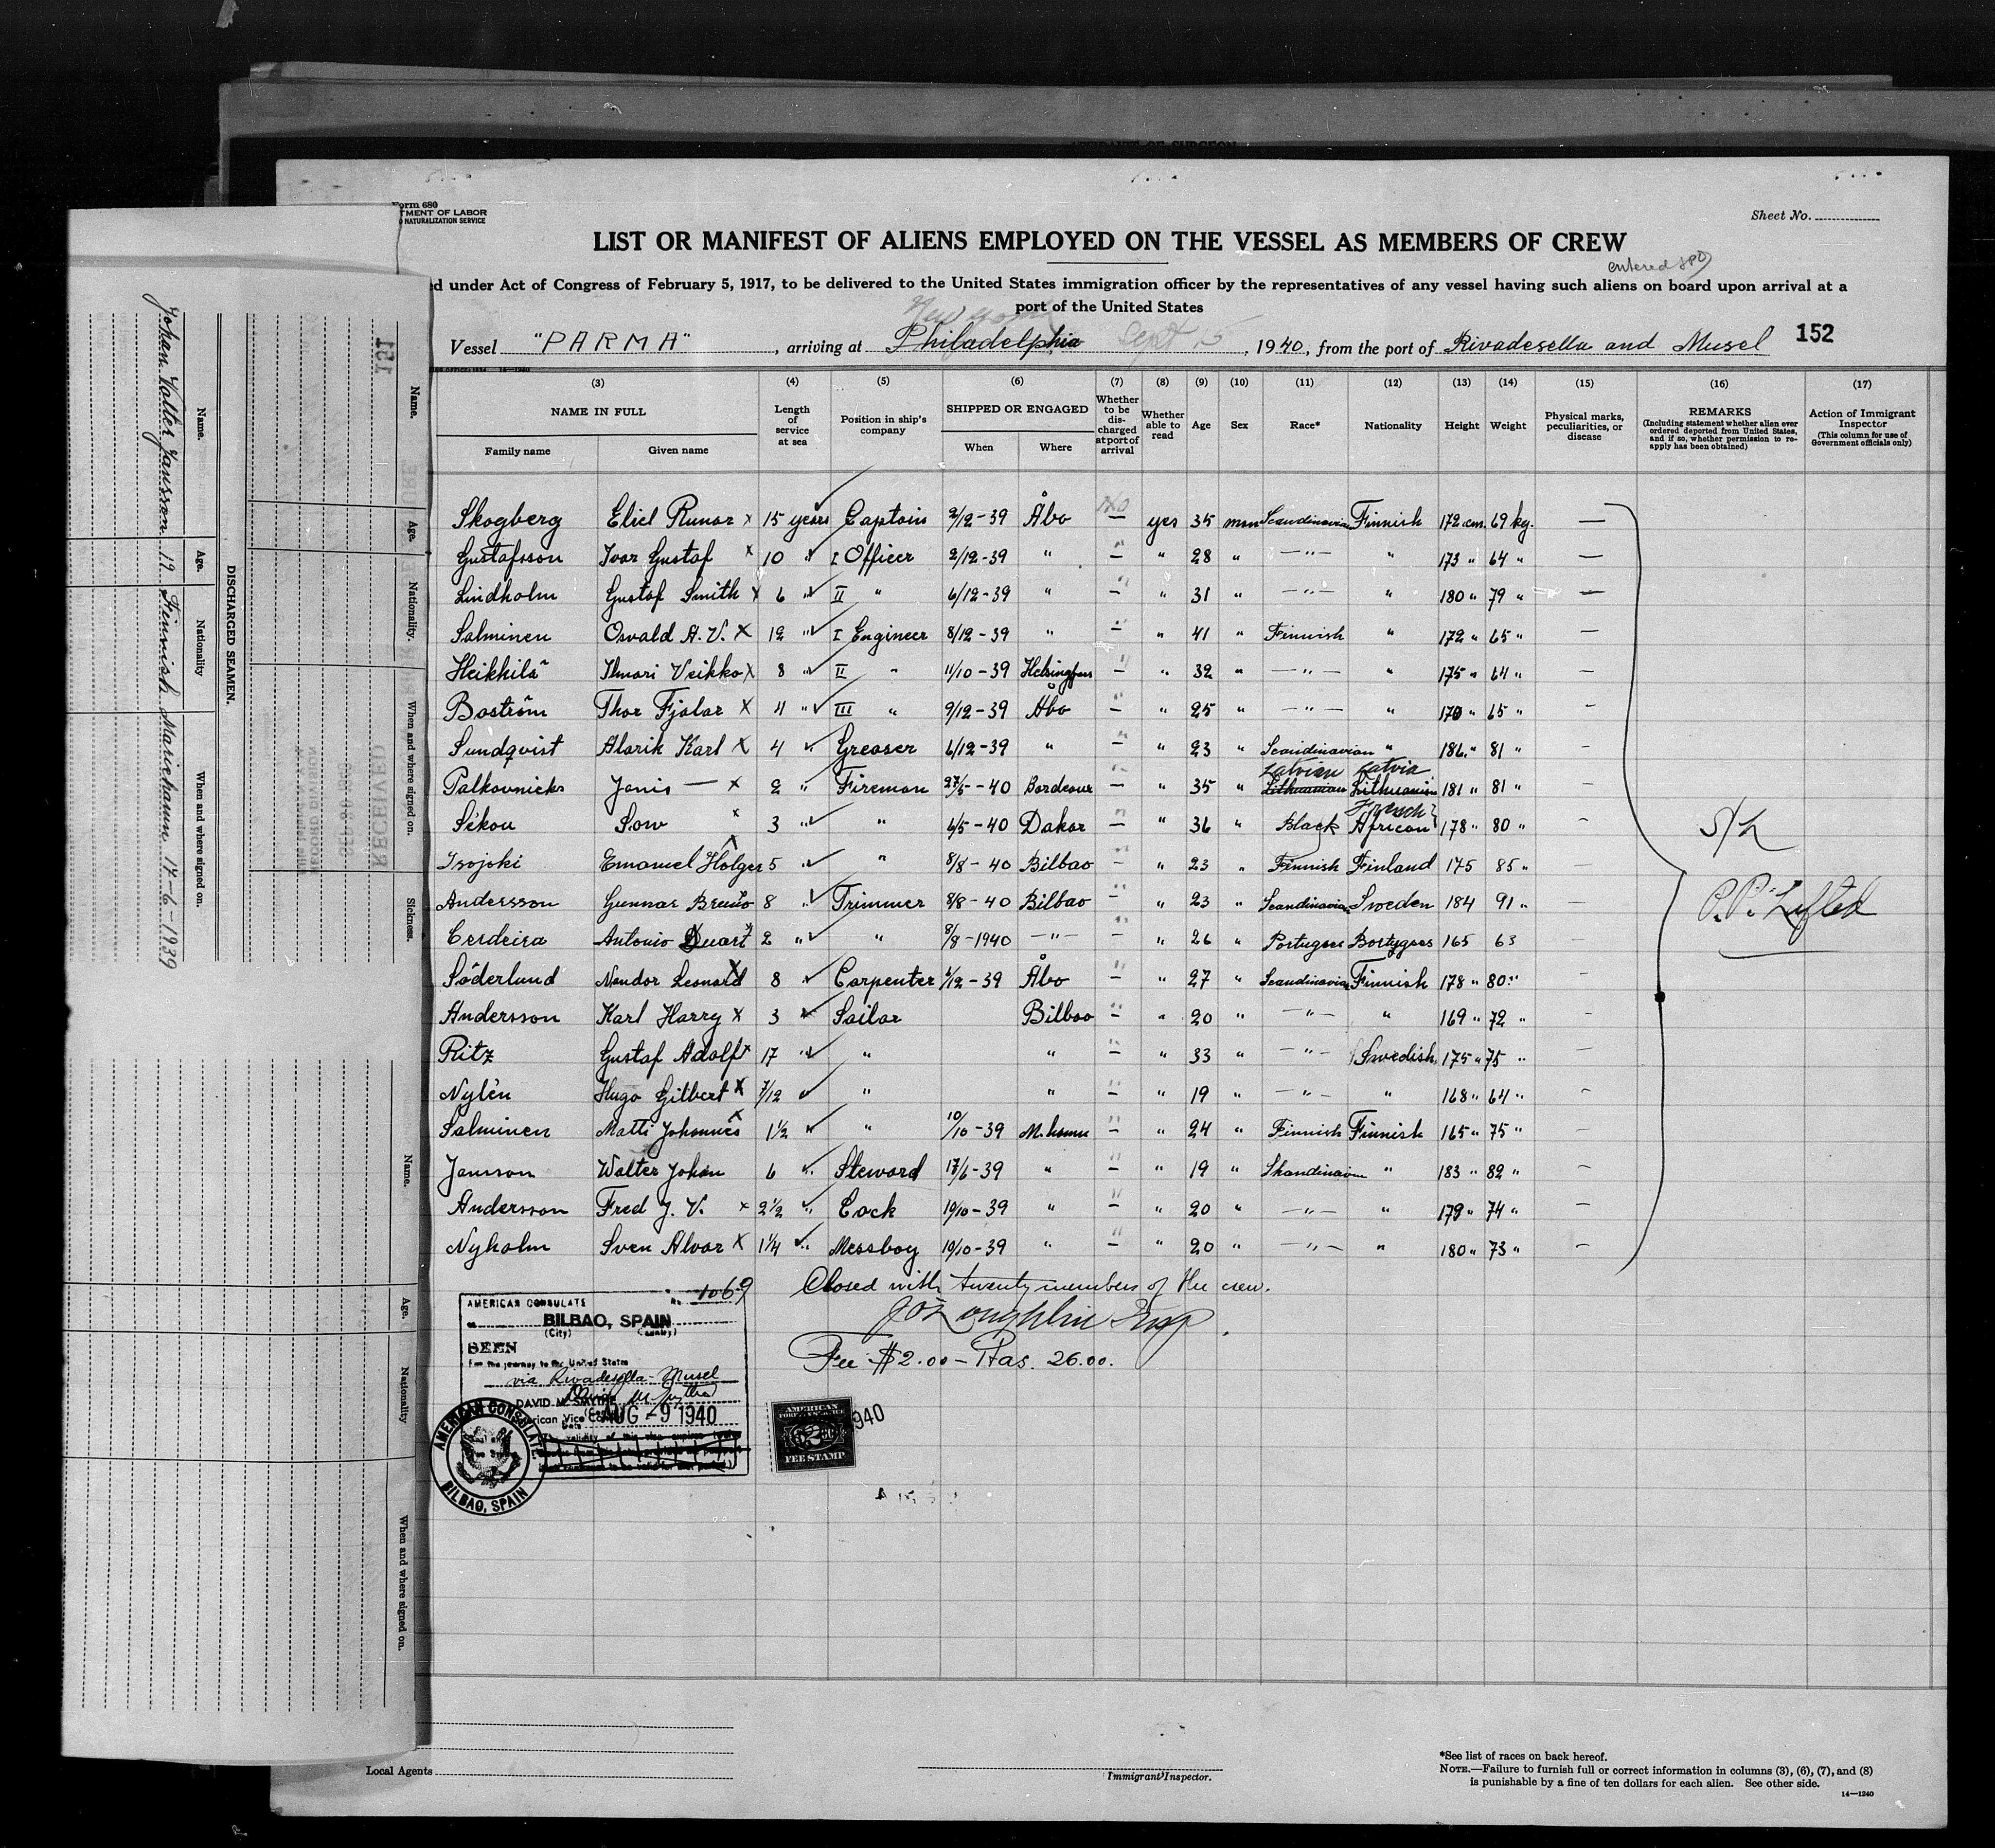 Form 680
TMENT OF LABOR
D NATURALIZATION SERVICE
Sheet No.
LIST OR MANIFEST OF ALIENS EMPLOYED ON THE VESSEL AS MEMBERS OF CREW
entered
d under Act of Congress of February 5, 1917, to be delivered to the United States immigration officer by the representatives of any vessel having such aliens on board upon arrival at a
port of the United States
New York
Vessel "PARMA", arriving at Philadelphia Sept 15, 1940, from the port of Rivadesella and Musel 152
(3) (4) (5) (6) (7) (8) (9) (10) (11) (12) (13) (14) (15) (16) (17)
NAME IN FULL Family name Given name Length of service at sea Position in ship's company SHIPPED OR ENGAGED When Where Whether to be discharged at port of arrival Whether able to read Age Sex Race* Nationality Height Weight Physical marks, peculiarities, or disease REMARKS (Including statement whether alien ever ordered deported from United States, and if so, whether permission to reapply has been obtained) Action of Immigrant Inspector (This column for use of Government officials only)
Skogberg Eliel Runar x 15 years Captain 2/12-39 Åbo No — yes 35 man Scandinavian Finnish 172 cm. 69 kg. —
Gustafsson Ivar Gustaf x 10 " I Officer 2/12-39 " — " 28 " —"— " 173 " 64 " —
Lindholm Gustaf Smith x 6 " II " 6/12-39 " — " 31 " —"— " 180 " 79 " —
Salminen Osvald A. V. x 12 " I Engineer 8/12-39 " — " 41 " Finnish " 172 " 65 " —
Heikkilä Ilmari Veikko x 8 " II " 11/10-39 Helsingfors — " 32 " —"— " 175 " 64 " —
Boström Thor Fjalar x 4 " III " 9/12-39 Åbo — " 25 " —"— " 170 " 65 " —
Sundqvist Alarik Karl x 4 " Greaser 6/12-39 " — " 23 " Scandinavian " 186 " 81 " —
Latvian Latvia
Palkovnicks Janis — x 2 " Fireman 27/5-40 Bordeaux — " 35 " Lithuanian Lithuanian 181 " 81 " —
French
Sékou Sow x 3 " " 6/5-40 Dakar — " 36 " Black African 178 " 80 " —
Isojoki Emanuel Holger x 5 " " 8/8-40 Bilbao — " 23 " Finnish Finland 175 85 " —
Andersson Gunnar 8 " Trimmer 8/8-40 Bilbao — " 23 " Scandinavian Sweden 184 91 " —
P.P. Lifted
Cerdeira Antonio Duart x 2 " " 8/8-1940 —"— — " 26 " Portugees Bortygees 165 63 —
Söderlund Nandor Leonard x 8 " Carpenter 1/12-39 Åbo — " 27 " Scandinavian Finnish 178 " 80 " —
Andersson Karl Harry x 3 " Sailor Bilbao — " 20 " —"— " 169 " 72 " —
Ritz Gustaf Adolf x 17 " " " — " 33 " —"— Swedish 175 " 75 " —
Nylén Hugo Gilbert x 7/12 " " " — " 19 " —"— " 168 " 64 " —
Salminen Matti Johannes x 1½ " " 10/10-39 M. hamn — " 24 " Finnish Finnish 165 " 75 " —
Janson Walter Johan 6 " Steward 17/6-39 " — " 19 " Skandinavian " 183 " 82 " —
Andersson Fred J. V. x 2½ " Cock 19/10-39 " — " 20 " —"— " 179 " 74 " —
Nyholm Sven Alvar x 1¼ " Messboy 19/10-39 " — " 20 " —"— " 180 " 73 " —
Closed with twenty members of the crew.
Fee $2.00 – Ptas. 26.00.
No 1069
AMERICAN CONSULATE
BILBAO, SPAIN
(City) (Country)
SEEN
For the journey to the United States
via Rivadesella-Musel
DAVID M. SMYTHE
rican Vice Consul
Date AUG -9 1940
AMERICAN CONSULATE
BILBAO, SPAIN
AMERICAN
FOREIGN SERVICE
$2
FEE STAMP
940
Local Agents
Immigrant Inspector.
*See list of races on back hereof.
NOTE.—Failure to furnish full or correct information in columns (3), (6), (7), and (8)
is punishable by a fine of ten dollars for each alien. See other side.
14—1240
DISCHARGED SEAMEN.
Name. Age. Nationality When and where signed on.
Johan Valter Jansson 19 Finnish Mariehamn 17-6-1939
Name. Age. Nationality. When and where signed on. Sickness.
Name. Age. Nationality When and where signed on.
151
RECEIVED
RECORD DIVISION